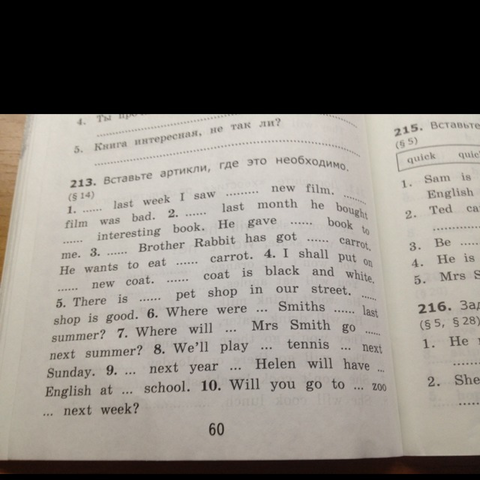 4. Ты
5. Книга интересная, не так ли?
................................................
213. Вставьте артикли, где это необходимо.
(§ 14)
1. ...... last week I saw ......... new film. ......
film was bad. 2. ...... last month he bought
...... interesting book. He gave ...... book to
me. 3. ...... Brother Rabbit has got ...... carrot.
He wants to eat ...... carrot. 4. I shall put on
...... new coat. ...... coat is black and white.
5. There is ...... pet shop in our street. ......
shop is good. 6. Where were ... Smiths ...... last
summer? 7. Where will ... Mrs Smith go ......
next summer? 8. We'll play ... tennis ... next
Sunday. 9. ... next year ... Helen will have ...
English at ... school. 10. Will you go to ... zoo
... next week?
60
215. Вставьте
(§ 5)
quick
1. Sam is
English
2. Ted
3. Be ......
4. He is
5. Mrs S
216.
(§ 5, § 28)
1. He
2. She